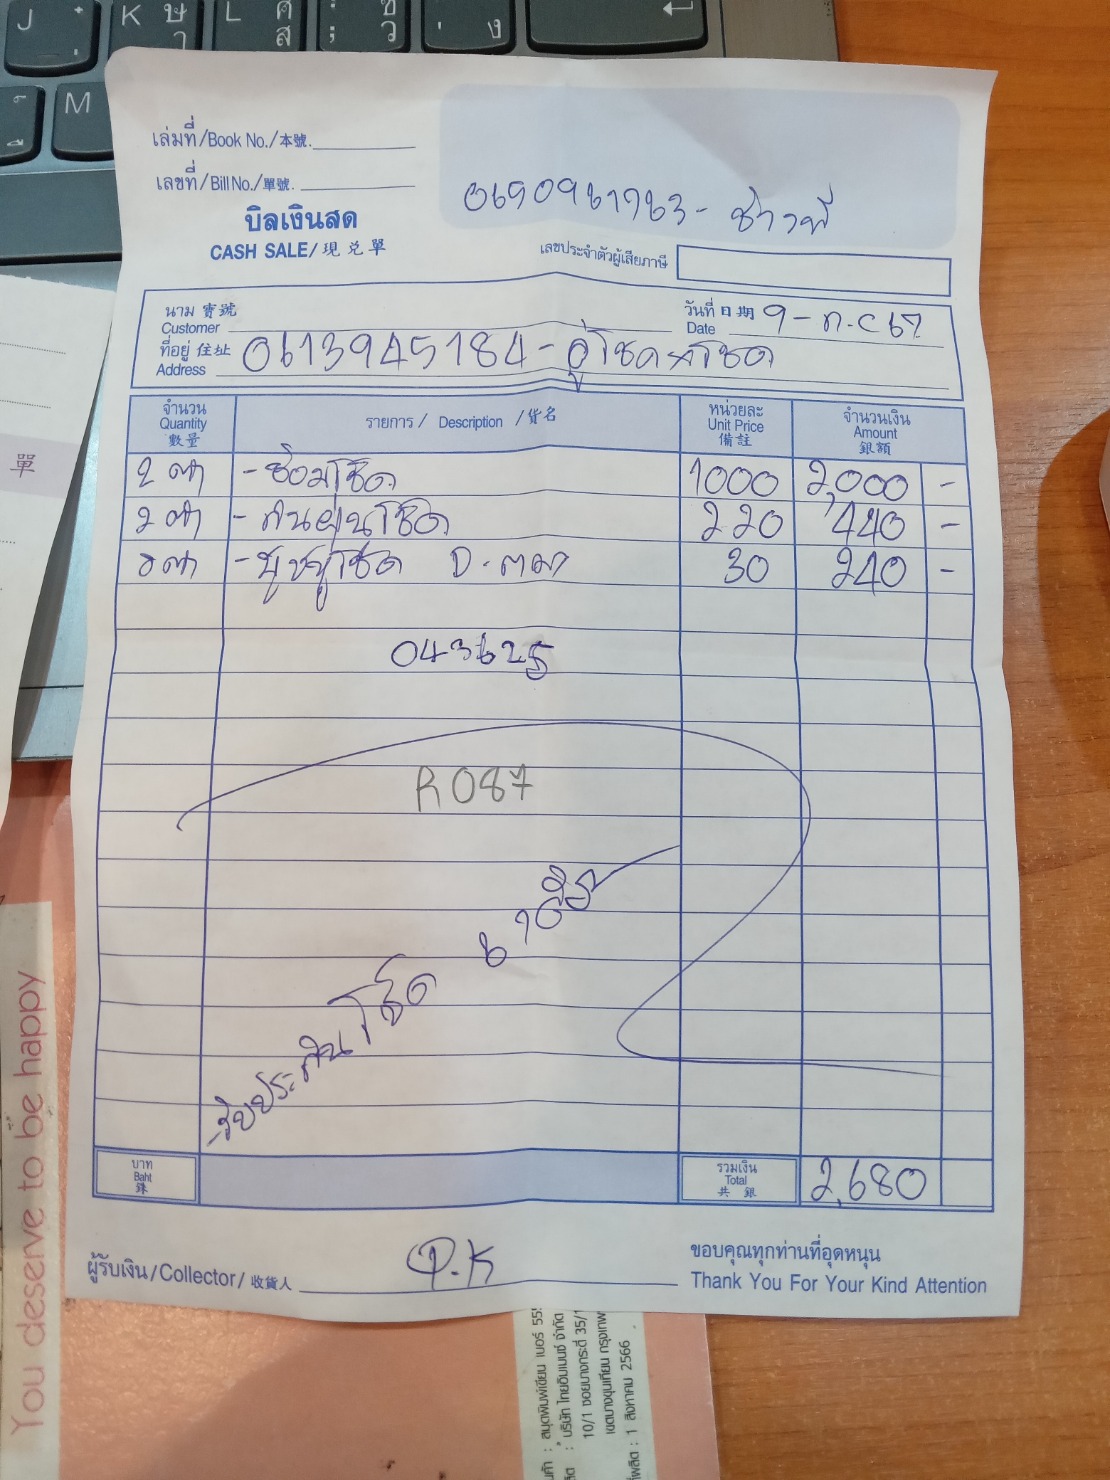 J
K ษ
L ศ ส
; ซ ว
ง
M
單
เล่มที่/Book No./本號.
เลขที่/Bill No./單號.
บิลเงินสด
CASH SALE/現兑單
0690961763 - ช่างพี
เลขประจำตัวผู้เสียภาษี
นาม 寶號
Customer
วันที่ 日期 9 - ก.ค 67
Date
ที่อยู่ 住址 0613945184 - อู่โชค
Address
จำนวน รายการ / Description / 貨名 หน่วยละ จำนวนเงิน
Quantity Unit Price Amount
數量 備註 銀額
2 ตัว - ซ่อมโช๊ค 1000 2,000 -
2 ตัว - กันฝุ่นโช๊ค 220 440 -
8 ตัว - บูชหูโช๊ค D. 30 240 -
043625
R087
รับประกันโช๊ค 6 เดือน
บาท รวมเงิน 2,680
Baht Total
銖 共 銀
ผู้รับเงิน/Collector/收貨人 P.K
ขอบคุณทุกท่านที่อุดหนุน
Thank You For Your Kind Attention
You deserve to be happy
: สมุดพิมพ์เขียน เบอร์ 55
: บริษัท ไทยอินเมนซ์ จำกัด
10/1 ซอยบางกระดี่ 35/1
เขตบางขุนเทียน กรุงเทพ
: 1 สิงหาคม 2566